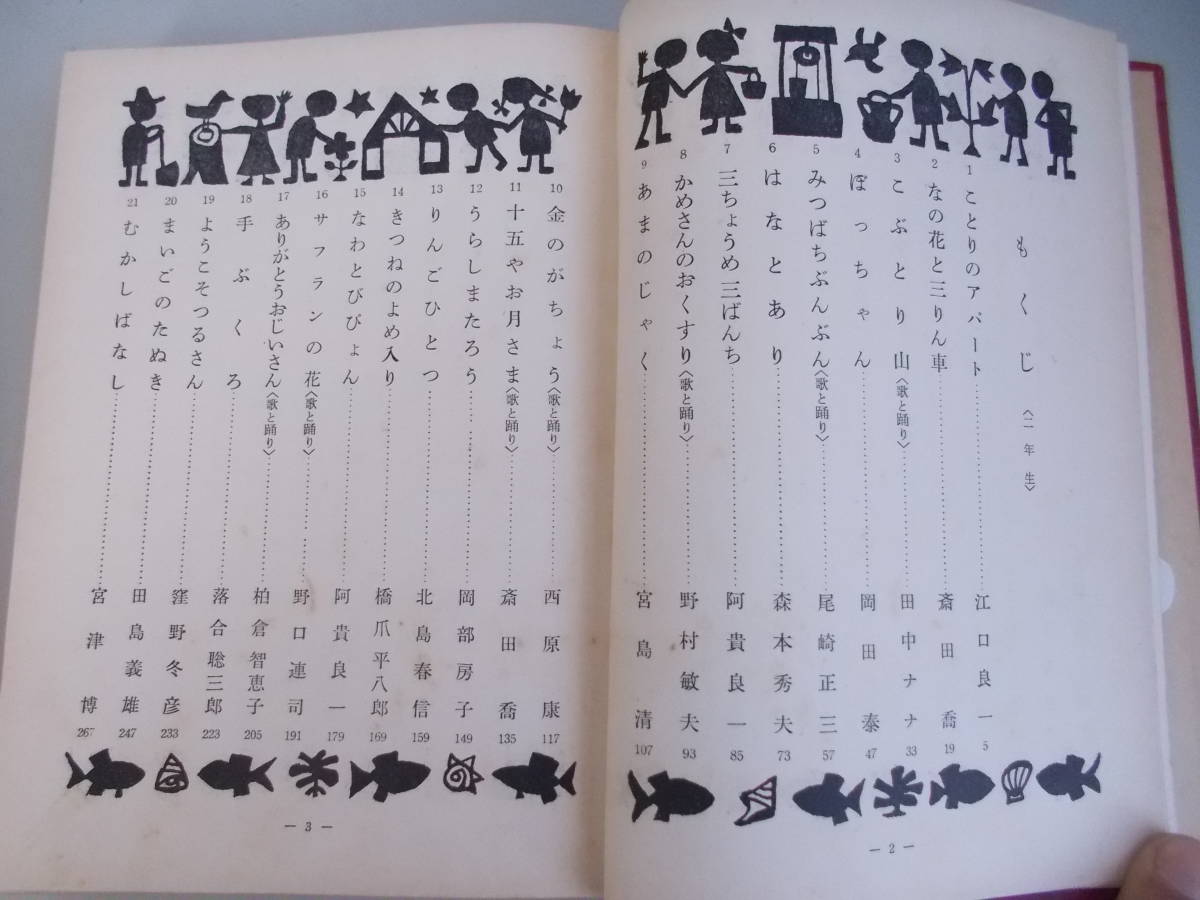 もくじ〈二年生〉
1 ことりのアパート……江口良一 5
2 なの花と三りん車……斎田喬 19
3 こぶとり山〈歌と踊り〉……田中ナナ 33
4 ぼっちゃん……岡田泰 47
5 みつばちぶんぶん〈歌と踊り〉……尾崎正三 57
6 はなとあり……森本秀夫 73
7 三ちょうめ三ばんち……阿貴良一 85
8 かめさんのおくすり〈歌と踊り〉……野村敏夫 93
9 あまのじゃく……宮島清 107
— 2 —
10 金のがちょう〈歌と踊り〉……西原康 117
11 十五やお月さま〈歌と踊り〉……斎田喬 135
12 うらしまたろう……岡部房子 149
13 りんごひとつ……北島春信 159
14 きつねのよめ入り……橋爪平八郎 169
15 なわとびぴょん……阿貴良一 179
16 サフランの花〈歌と踊り〉……野口連司 191
17 ありがとうおじいさん〈歌と踊り〉……柏倉智恵子 205
18 手ぶくろ……落合聡三郎 223
19 ようこそつるさん……窪野冬彦 233
20 まいごのたぬき……田島義雄 247
21 むかしばなし……宮津博 267
— 3 —